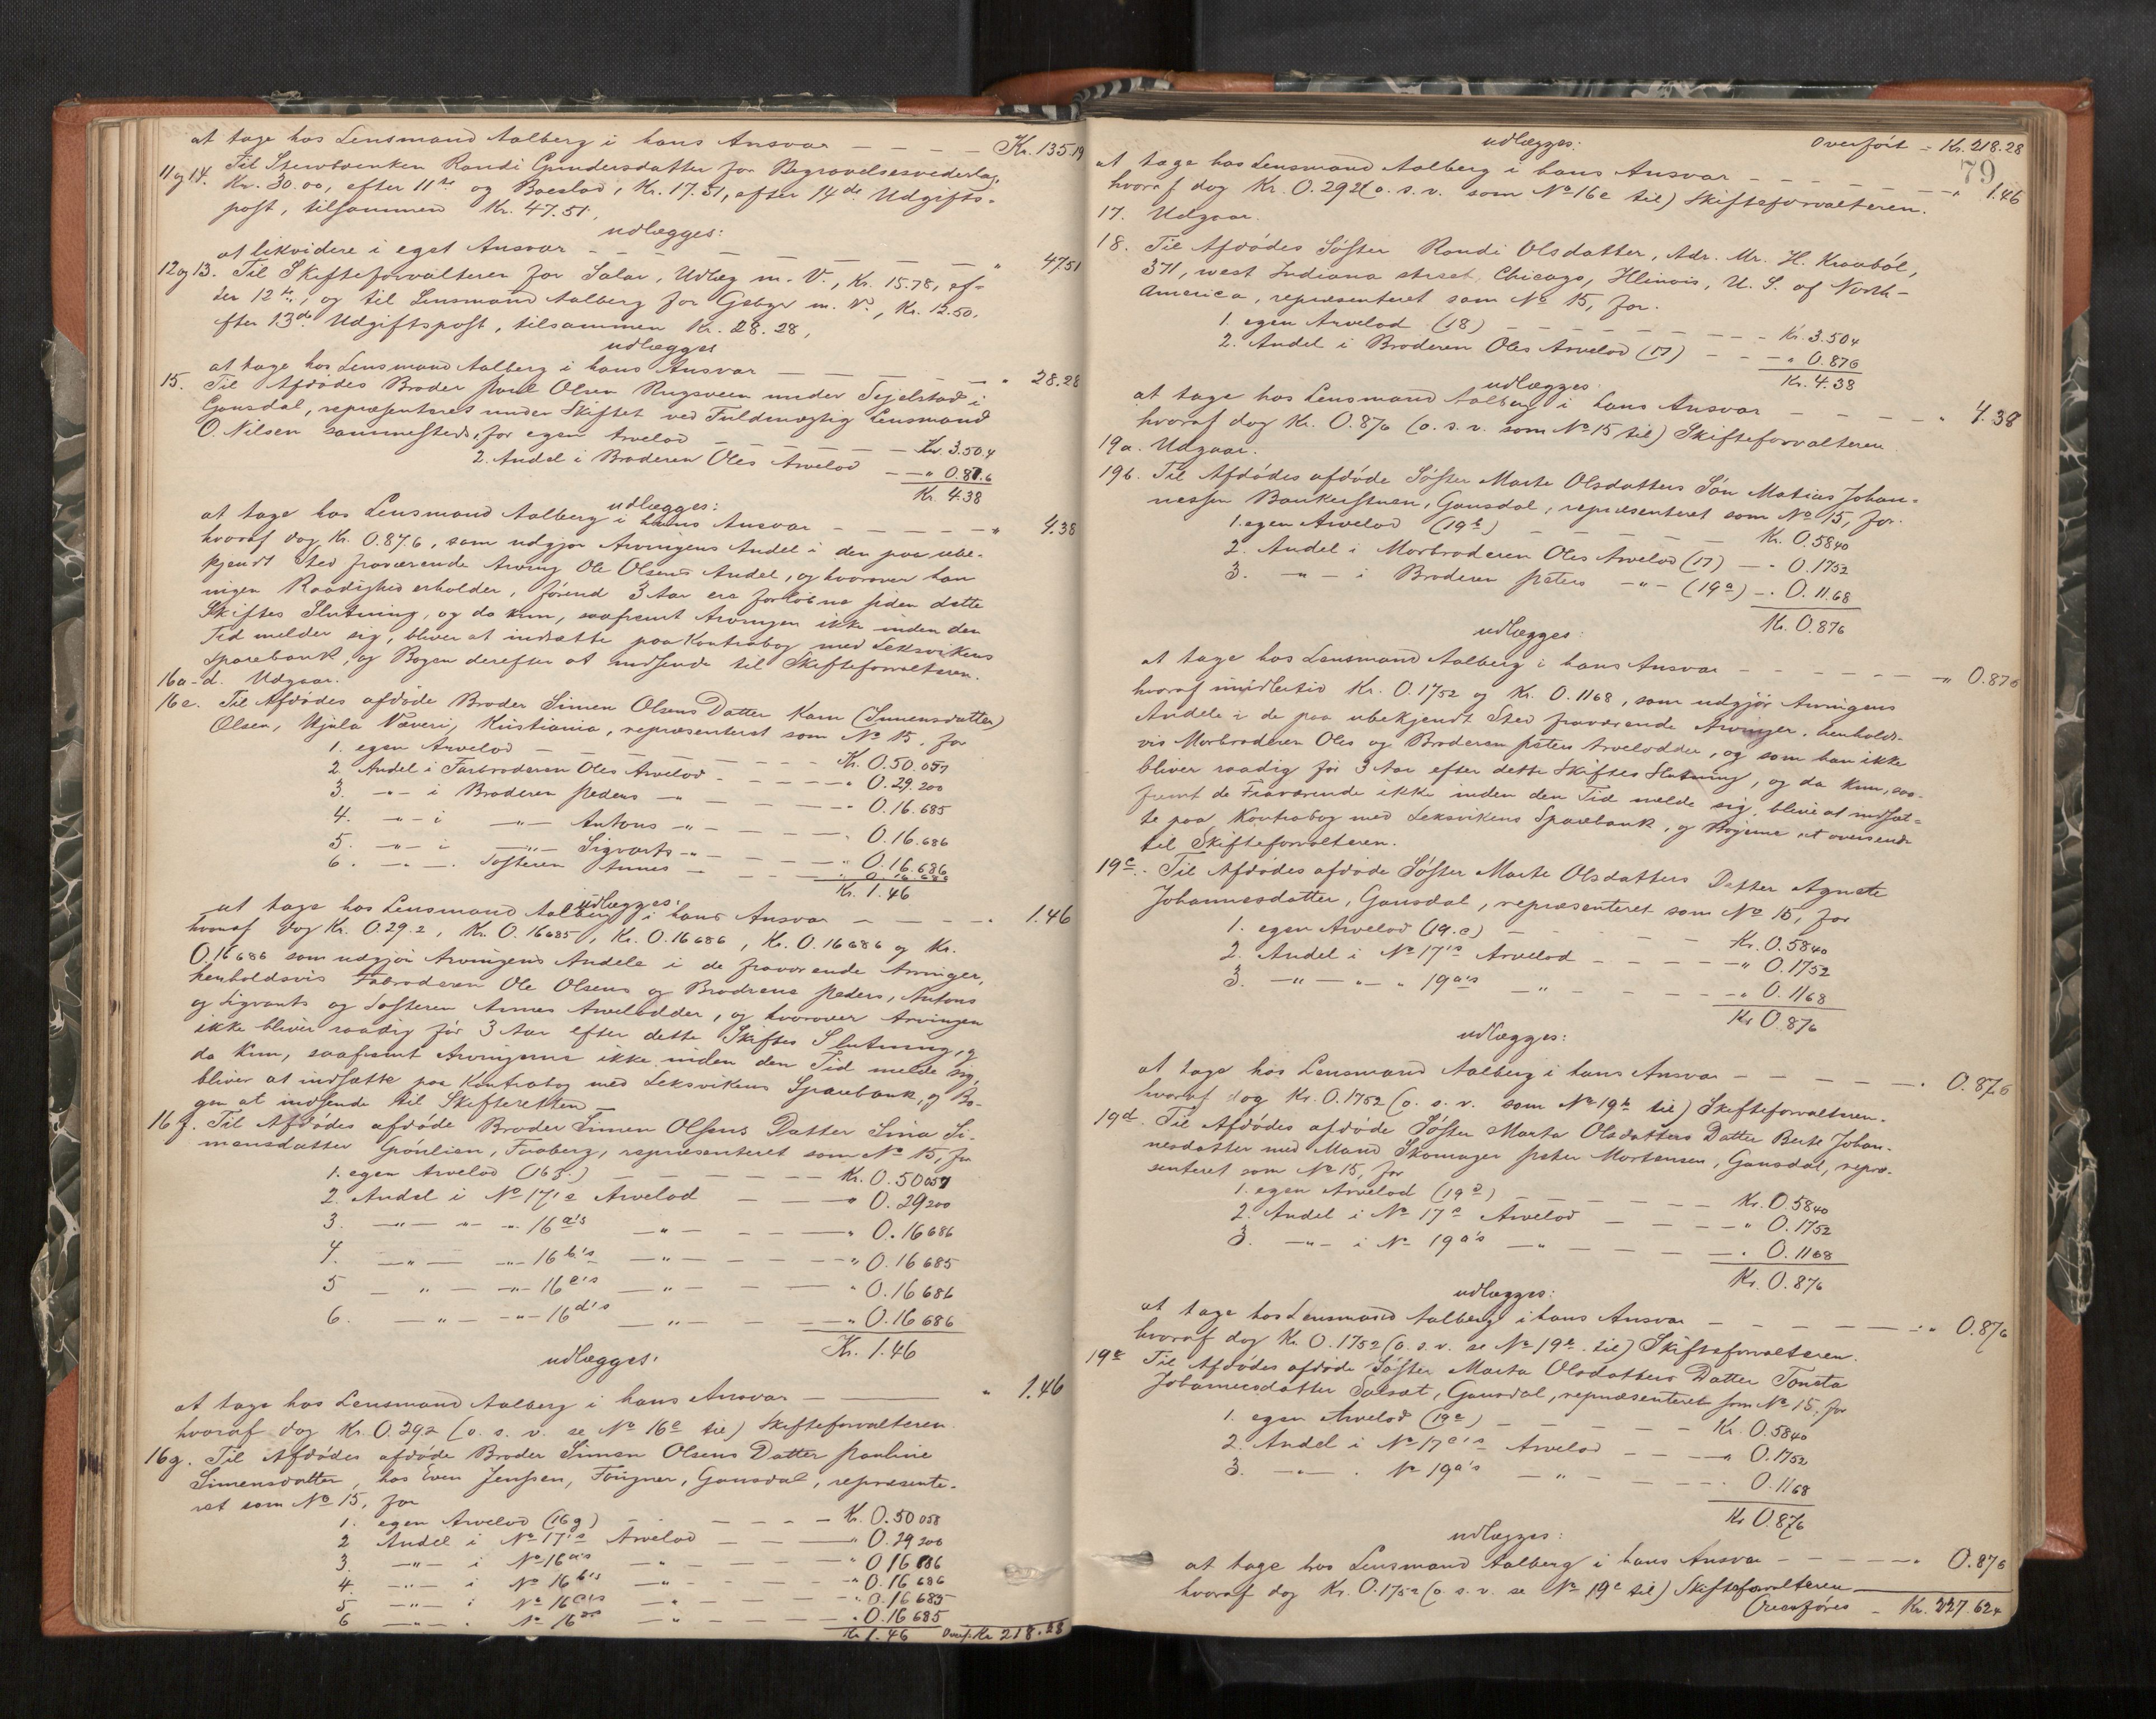 at tage hos Lensmand Aalberg i hans Ansvar — — — — Kr. 135.19
11 og 14. Til Stervboenken Randi Gundersdatter for Begravelsesvederlag,
Kr. 30.00, efter 11te og Boeslod, Kr. 17.51, efter 14de Udgifts-
post, tilsammen Kr. 47.51,
udlægges:
at likvidere i eget Ansvar — — — — — — " 47.51
12 og 13. Til Skifteforvalteren for Salær, Udlæg m. V., Kr. 15.78, ef-
ter 12te, og til Lensmand Aalberg for Gebyr m. V., Kr. 12.50,
efter 13de Udgiftspost, tilsammen Kr. 28.28,
udlægges
at tage hos Lensmand Aalberg i hans Ansvar — — — — " 28.28
15. Til Afdødes Broder Poul Olsen Rugsveen under Sejelstad i
Gausdal, repræsenteret under Skiftet ved Fuldmægtig Lensmand
O. Nilsen sammesteds, for egen Arvelod — — — — Kr. 3.504
2. Andel i Broderen Oles Arvelod — — " 0.87.6
Kr. 4.38
udlægges:
at tage hos Lensmand Aalberg i hans Ansvar — — — — " 4.38
hvoraf dog Kr. 0.87.6, som udgjør Arvingens Andel i den paa ube-
kjendt Sted fraværende Arving Ole Olsens Andel, og hvorover han
ingen Raadighed erholder, førend 3 Aar ere forløbne siden dette
Skiftes Slutning, og da kun, saafremt Arvingen ikke inden den
Tid melder sig, bliver at indsætte paa Kontrabog med Leksvikens
Sparebank, og Bogen derefter at indsende til Skifteforvalteren.
16a-d. Udgaar.
16e. Til Afdødes afdøde Broder Simen Olsens Datter Karn (Simensdatter)
Olsen, Hjula Væveri, Kristiania, repræsenteret som No 15, for
1. egen Arvelod — — — — Kr. 0.50.057
2. Andel i Farbroderen Oles Arvelod — — — — " 0.29.200
3. —"— i Broderen Peders —"— — — — " 0.16.685
4. —"— i —"— Antons —"— — — — " 0.16.686
5. —"— i —"— Sigvarts —"— — — — " 0.16.686
6. —"— . Søsteren Annes — — — — " 0.16.686
Kr. 1.46
udlægges:
at tage hos Lensmand Aalberg i hans Ansvar — — — — " 1.46
hvoraf dog Kr. 0.29.2, Kr. 0.16685, Kr. 0.16686, Kr. 0.16686 og Kr.
0.16686 som udgjør Arvingens Andele i de fraværende Arvinger,
henholdsvis Farbroderen Ole Olsens og Brødrene Peders, Antons
og Sigvarts og Søsteren Annes Arvelodder, og hvorover Arvingen
ikke bliver raadig før 3 Aar efter dette Skiftes Slutning, og
da kun, saafremt Arvingerne ikke inden den Tid melde sig,
bliver at indsætte paa Kontrabog med Leksvikens Sparebank, og Bo-
gen at indsende til Skifteretten —
16f. Til Afdødes afdøde Broder Simen Olsens Datter Sina Si-
mensdatter Grønlien, Faaberg, repræsenteret som No 15, for
1. egen Arvelod (16f.) — — — — Kr. 0.50057
2. Andel i No 17's Arvelod — — " 0.29200
3. —"— "— " 16a's —"— — — — " 0.16686
4. —"— —"— 16b's —"— — — — " 0.16685
5 —"— —"— 16c's —"— — — — " 0.16686
6. —"— —"— 16d's —"— — — " 0.16686
Kr. 1.46
udlægges:
at tage hos Lensmand Aalberg i hans Ansvar — — " 1.46
hvoraf dog Kr. 0.292 (o. s. v. se No 16e til) Skifteforvalteren.
16g. Til Afdødes afdøde Broder Simen Olsens Datter Pauline
Simensdatter, hos Even Jenssen, Fougner, Gausdal, repræsente-
ret som No 15, for
1. egen Arvelod (16g) — — — — Kr. 0.50058
2 Andel i No 17's Arvelod — — " 0.29200
3. —"— i No 16a's —"— — — — " 0.16686
4. —"— i No 16b's —"— — — — " 0.16686
5 —"— i No 16c's —"— — — — " 0.16685
6 —"— . No 16d's —"— — — — " 0.16685
Kr 1.46 Overf. Kr 218.28
udlægges: Overført — Kr. 218.28
79
at tage hos Lensmand Aalberg i hans Ansvar — — — — " 1.46
hvoraf dog Kr. 0.292 (o. s. v. som No 16e til) Skifteforvalteren.
17. Udgaar.
18. Til Afdødes Søster Randi Olsdatter, Adr. Mr. H. Kraabøl,
371, west Indiana street, Chicago, Illinois, U. S. of North-
America, repræsenteret som No 15, for.
1. egen Arvelod (18) — — — — Kr. 3.504
2. Andel i Broderen Oles Arvelod (17) — — " 0.876
Kr. 4.38
udlægges:
at tage hos Lensmand Aalberg i hans Ansvar — — — — " 4.38
hvoraf dog Kr. 0.876 (o. s. v. som No 15 til) Skifteforvalteren.
19a. Udgaar.
19b. Til Afdødes afdøde Søster Marte Olsdatters Søn Matias Johan-
nessen Baukerstuen, Gausdal, repræsenteret som No 15, for.
1. egen Arvelod (19b) — — — — Kr. 0.5840
2. Andel i Morbroderen Oles Arvelod (17) — " 0.1752
3. —"— i Broderen Peters —"— (19a) — " 0.1168
Kr. 0.876
udlægges:
at tage hos Lensmand Aalberg i hans Ansvar — — — — " 0.876
hvoraf imidlertid Kr. 0.1752 og Kr. 0.1168, som udgjør Arvingens
Andele i de paa ubekjendt Sted fraværende Arvinger, henholds-
vis Morbroderen Oles og Broderen Peters Arvelodder, og som han ikke
bliver raadig før 3 Aar efter dette Skiftes Slutning, og da kun, saa-
fremt de Fraværende ikke inden den Tid melde sig, bliver at indsæt-
te paa Kontrabog med Leksvikens Sparebank, og Bøgerne at oversende
til Skifteforvalteren.
19c. Til Afdødes afdøde Søster Marte Olsdatters Datter Agnete
Johannesdatter, Gausdal, repræsenteret som No 15, for
1. egen Arvelod (19.c) — — — — Kr. 0.5840
2. Andel i No 17's Arvelod — — — — " 0.1752
3. —"— "— " 19a's —"— — — — " 0.1168
Kr 0.876
udlægges:
at tage hos Lensmand Aalberg i hans Ansvar — — — — " 0.876
hvoraf dog Kr. 0.1752 (o. s. v. som No 19b til) Skifteforvalteren.
19d. Til Afdødes afdøde Søster Marta Olsdatters Datter Berte Johan-
nesdatter med Mand Skomager Peter Mortensen, Gausdal, repræ-
senteret som No 15, for
1. egen Arvelod (19d) — — — — Kr. 0.5840
2. Andel i No 17s Arvelod — — — — " 0.1752
3. —"— i No 19a's —"— — — — " 0.1168
Kr. 0.876
udlægges:
at tage hos Lensmand Aalberg i hans Ansvar — — — — " 0.876
hvoraf dog Kr. 0.1752 (o. s. v. se No 19b til) Skifteforvalteren.
19e Til Afdødes afdøde Søster Marta Olsdatters Datter Toneta
Johannesdatter Sulsæt, Gausdal, repræsenteret som No 15, for
1. egen Arvelod (19e) — — — — Kr. 0.5840
2. Andel i No 17's Arvelod — — — " 0.1752
3. —"— . No 19a's —"— — — — 0.1168
Kr 0.876
udlægges:
at tage hos Lensmand Aalberg i hans Ansvar — — — — " 0.876
hvoraf dog Kr. 0.1752 (o. s. v. se No 19c til) Skifteforvalteren
Overføres — Kr. 227.624